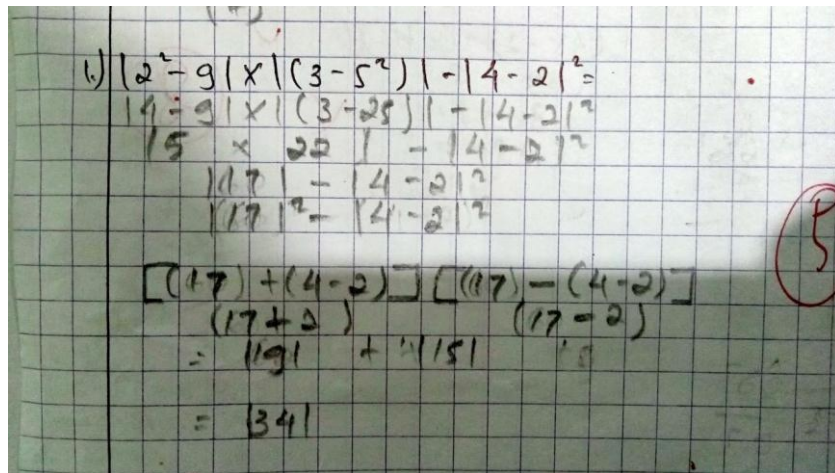 1.) |2² - 9| x |(3 - 5²)| - |4 - 2|² =
|4 - 9| x |(3 - 25)| - |4 - 2|²
|5 x 22| - |4 - 2|²
|17| - |4 - 2|²
|17|² - |4 - 2|²
5
[(17) + (4 - 2)] [(17) - (4 - 2)]
(17 + 2) (17 - 2)
= |19| + |15|
= |34|